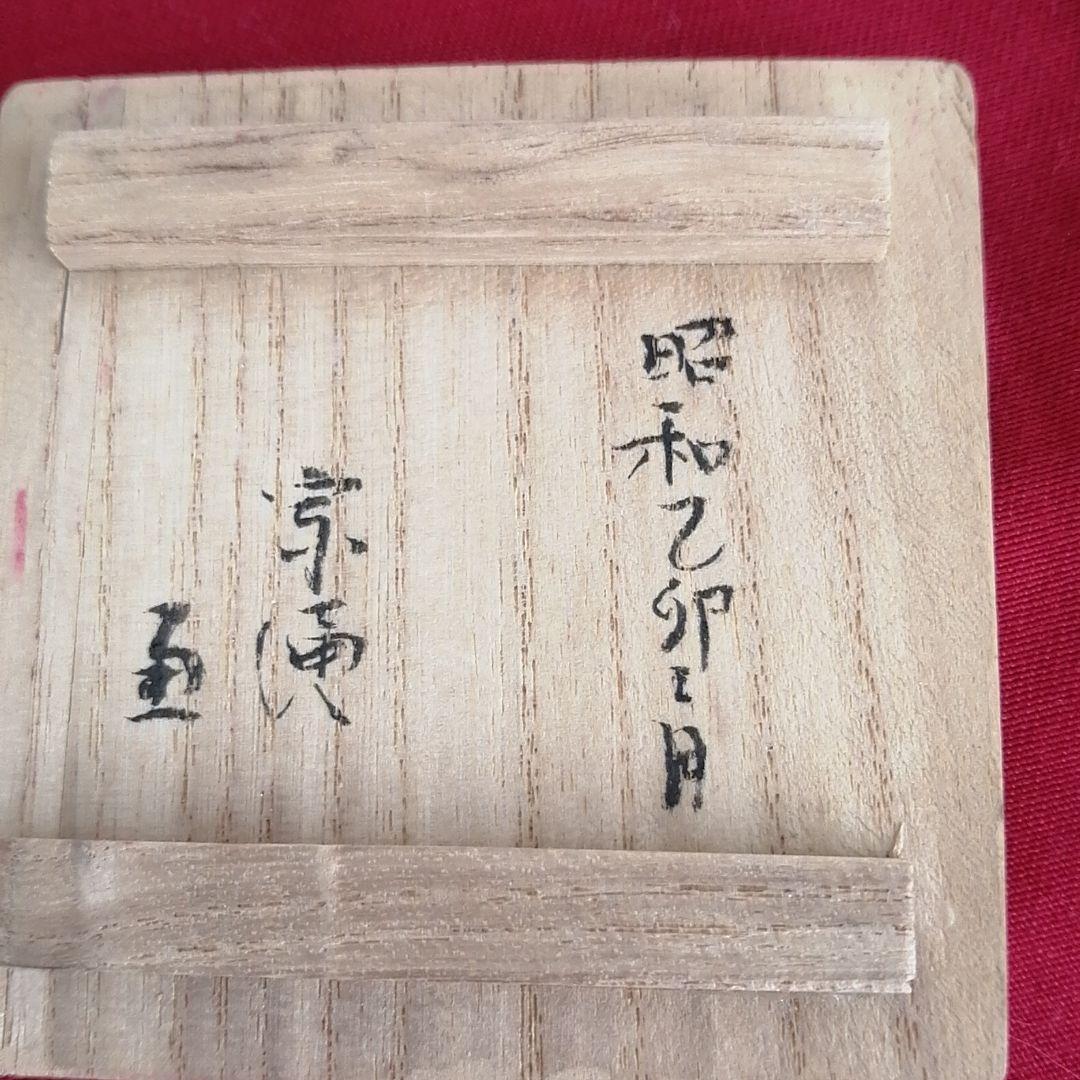 昭和乙卯三月
宗
画